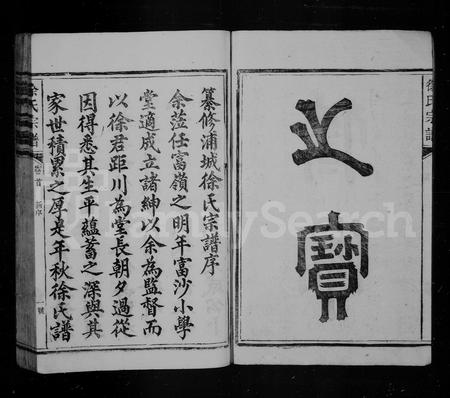 之
寶
徐氏宗譜
纂修浦城徐氏宗譜序
余蒞任富嶺之明年富沙小學
堂適成立諸紳以余為監督而
以徐君距川為堂長朝夕過從
因得悉其生平蘊蓄之深與其
家世積累之厚是年秋徐氏譜
徐氏宗譜
卷首
新序
一
號
FamilySearch